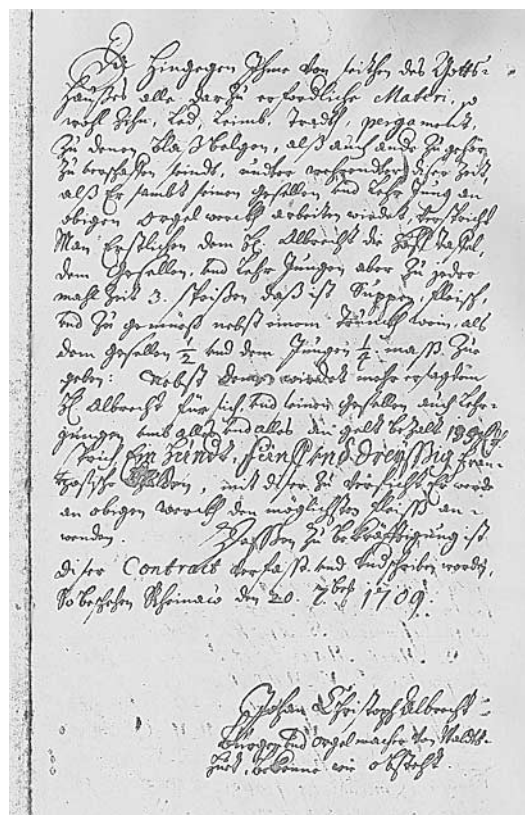 Die Hingegen Ihme von seithen des Gotts=
hausses alle darzu erfordliche Materi, so
wohl Zihn, Led, Leimb, Tradt, pergament,
zu denen Blaßbelgen, alß auch and zugehör
zu verschaffen seindt, undter wehrendter diser Zeit,
alß Er sambt seinen gesellen und Lehr Jung an
obigen Orgel werckh arbeiten wirdet, verspricht
Man Erstlichen dem H: Albrecht die Taffel,
dem Gesellen, und Lehr Jungen aber zu jeder
mahl Zeit 3. speißen daß ist Suppen, fleisch,
und zu gemüeß nebst einem Trunckh wein, als
dem gesellen 1/2 und dem Jungen 1/4 maß zue
geben: Nebst deme wirdet mehr ersagtem
H: Albrecht für sich, und seinen gesellen auch Lehr=
jungen umb alles und alles an gelt bezalt 135
sprich Ein hundt, fünff und dreyssig fran=
tzösische, mit diser zu versicht Er werde
an obigen werckh den möglichsten fleiss an=
wenden. Dessen zu bekräfftigung ist
diser Contract verfasst und undschriben worden,
So beschehen Rheinaw den 20. 7bris 1709.
Johan Christoph Albrecht
Burger und Orgelmacher von Waldts=
huet, bekenne wie obsteht.